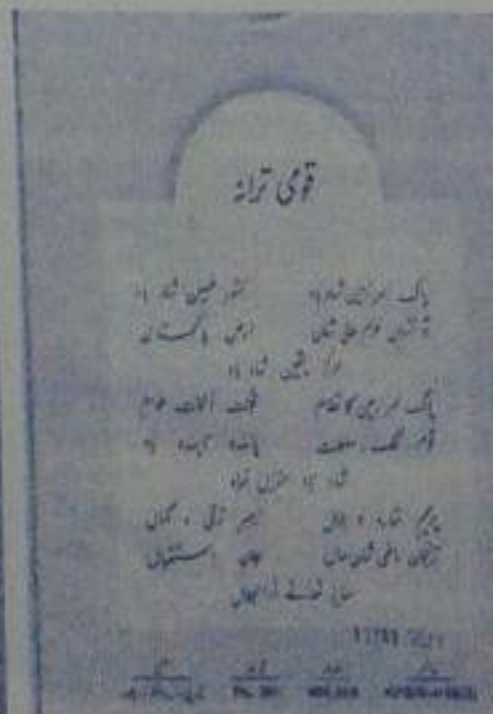 قومی ترانہ
پاک سرزمین شاد باد کشور حسین شاد باد
تو نشان عزم عالی شان ارض پاکستان
مرکز یقین شاد باد
پاک سرزمین کا نظام قوت اخوت عوام
قوم، ملک، سلطنت پائندہ تابندہ باد
شاد باد منزل مراد
پرچم ستارہ و ہلال رہبر ترقی و کمال
ترجمان ماضی شان حال جان استقبال
سایۂ خدائے ذوالجلال